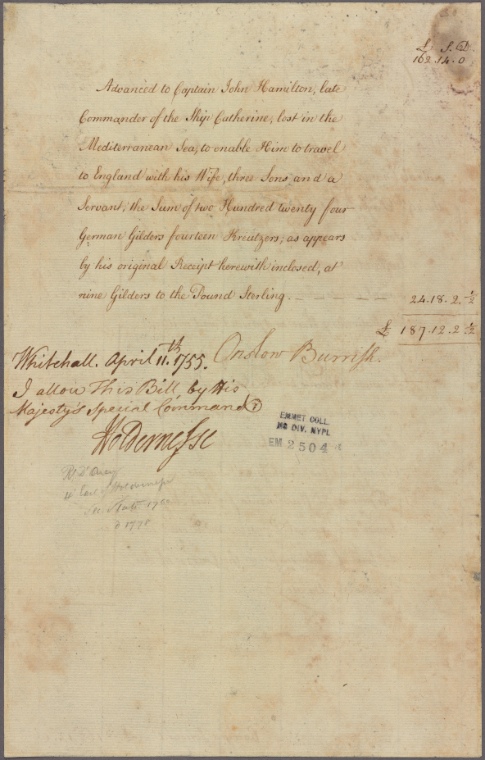 £ S. D
162.14.0
Advanced to Captain John Hamilton, late
Commander of the Ship Catherine, lost in the
Mediterranean Sea, to enable Him to travel
to England with his Wife, three Sons and a
Servant, the Sum of two Hundred twenty four
German Gilders fourteen Kreützers, as appears
by his original Receipt herewith inclosed, at
nine Gilders to the Pound Sterling. 24.18.2.½
£ 187.12.2½
Onslow Burrish.
Whitehall. April 11.th 1755.
I allow This Bill by His
Majesty's Special Command
Holdernesse
EMMET COLL.
MS DIV. NYPL
EM 2504